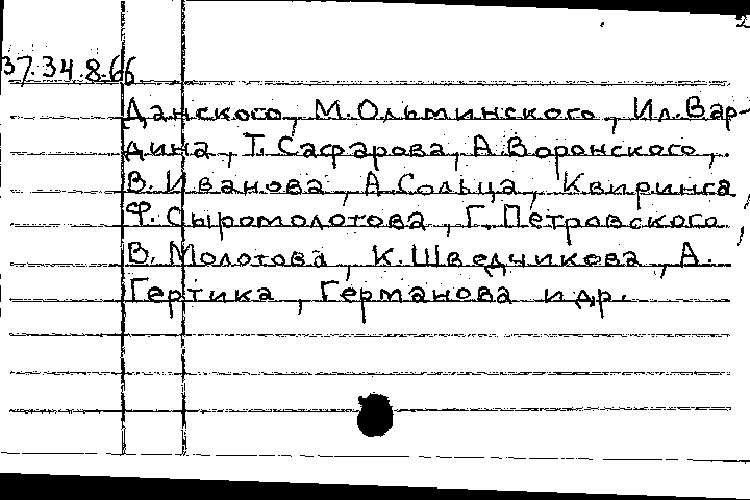 2
37.34.8.66
Данского, М.Ольминского, Ил.Вар-
дина, Т.Сафарова, А.Воронского,
В.Иванова, А.Сольца, Квиринга,
Ф.Сыромолотова, Г.Петровского,
В.Молотова, К.Шведчикова, А.
Гертика, Германова и др.